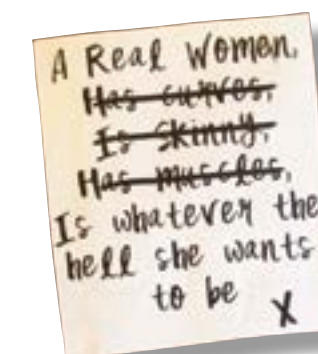 A Real Women,
Has curves,
Is skinny,
Has muscles,
Is whatever the
hell she wants
to be
X